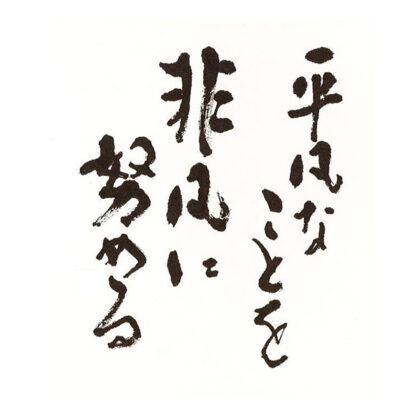 平凡なことを
非凡に
努める